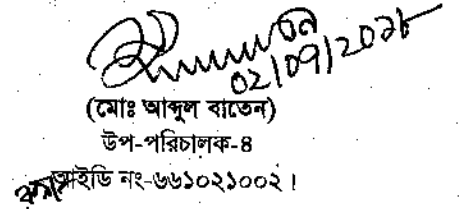 02/09/2026
(মোঃ আব্দুল বাতেন)
উপ-পরিচালক-৪
আইডি নং-৬৬১০২১০০২।